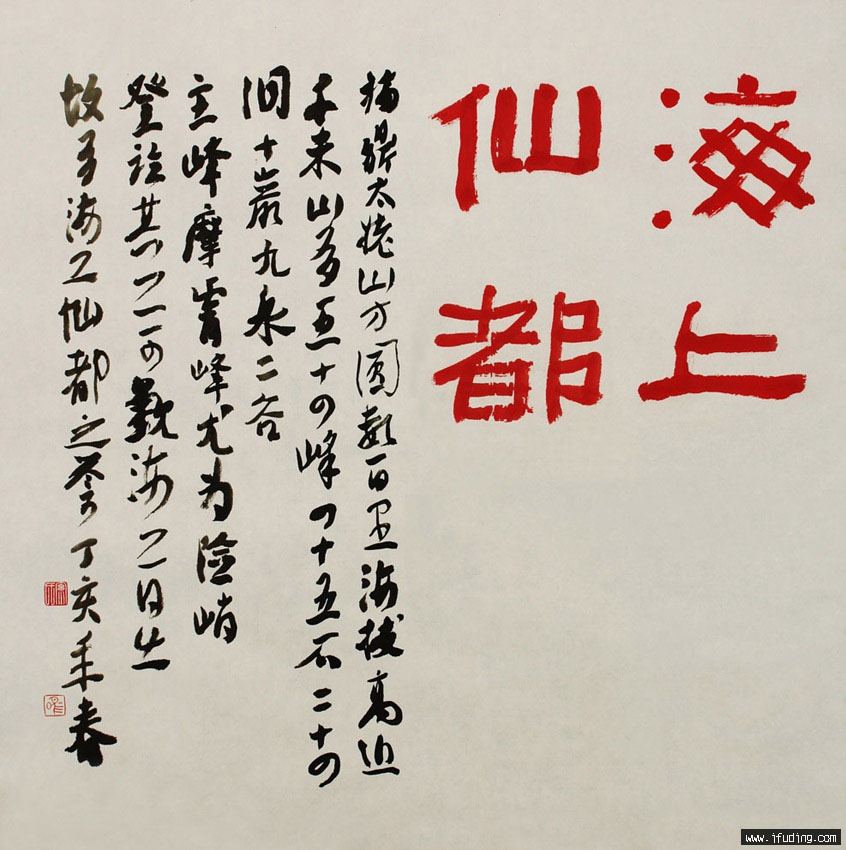 海上
仙都
福鼎太姥山方圆数百里海拔高近
千米山有五十四峰四十五石二十四
洞十岩九泉二谷
主峰摩霄峰尤为险峭
登临其上可观海上日出
故有海上仙都之誉丁亥年春
www.ifuding.com